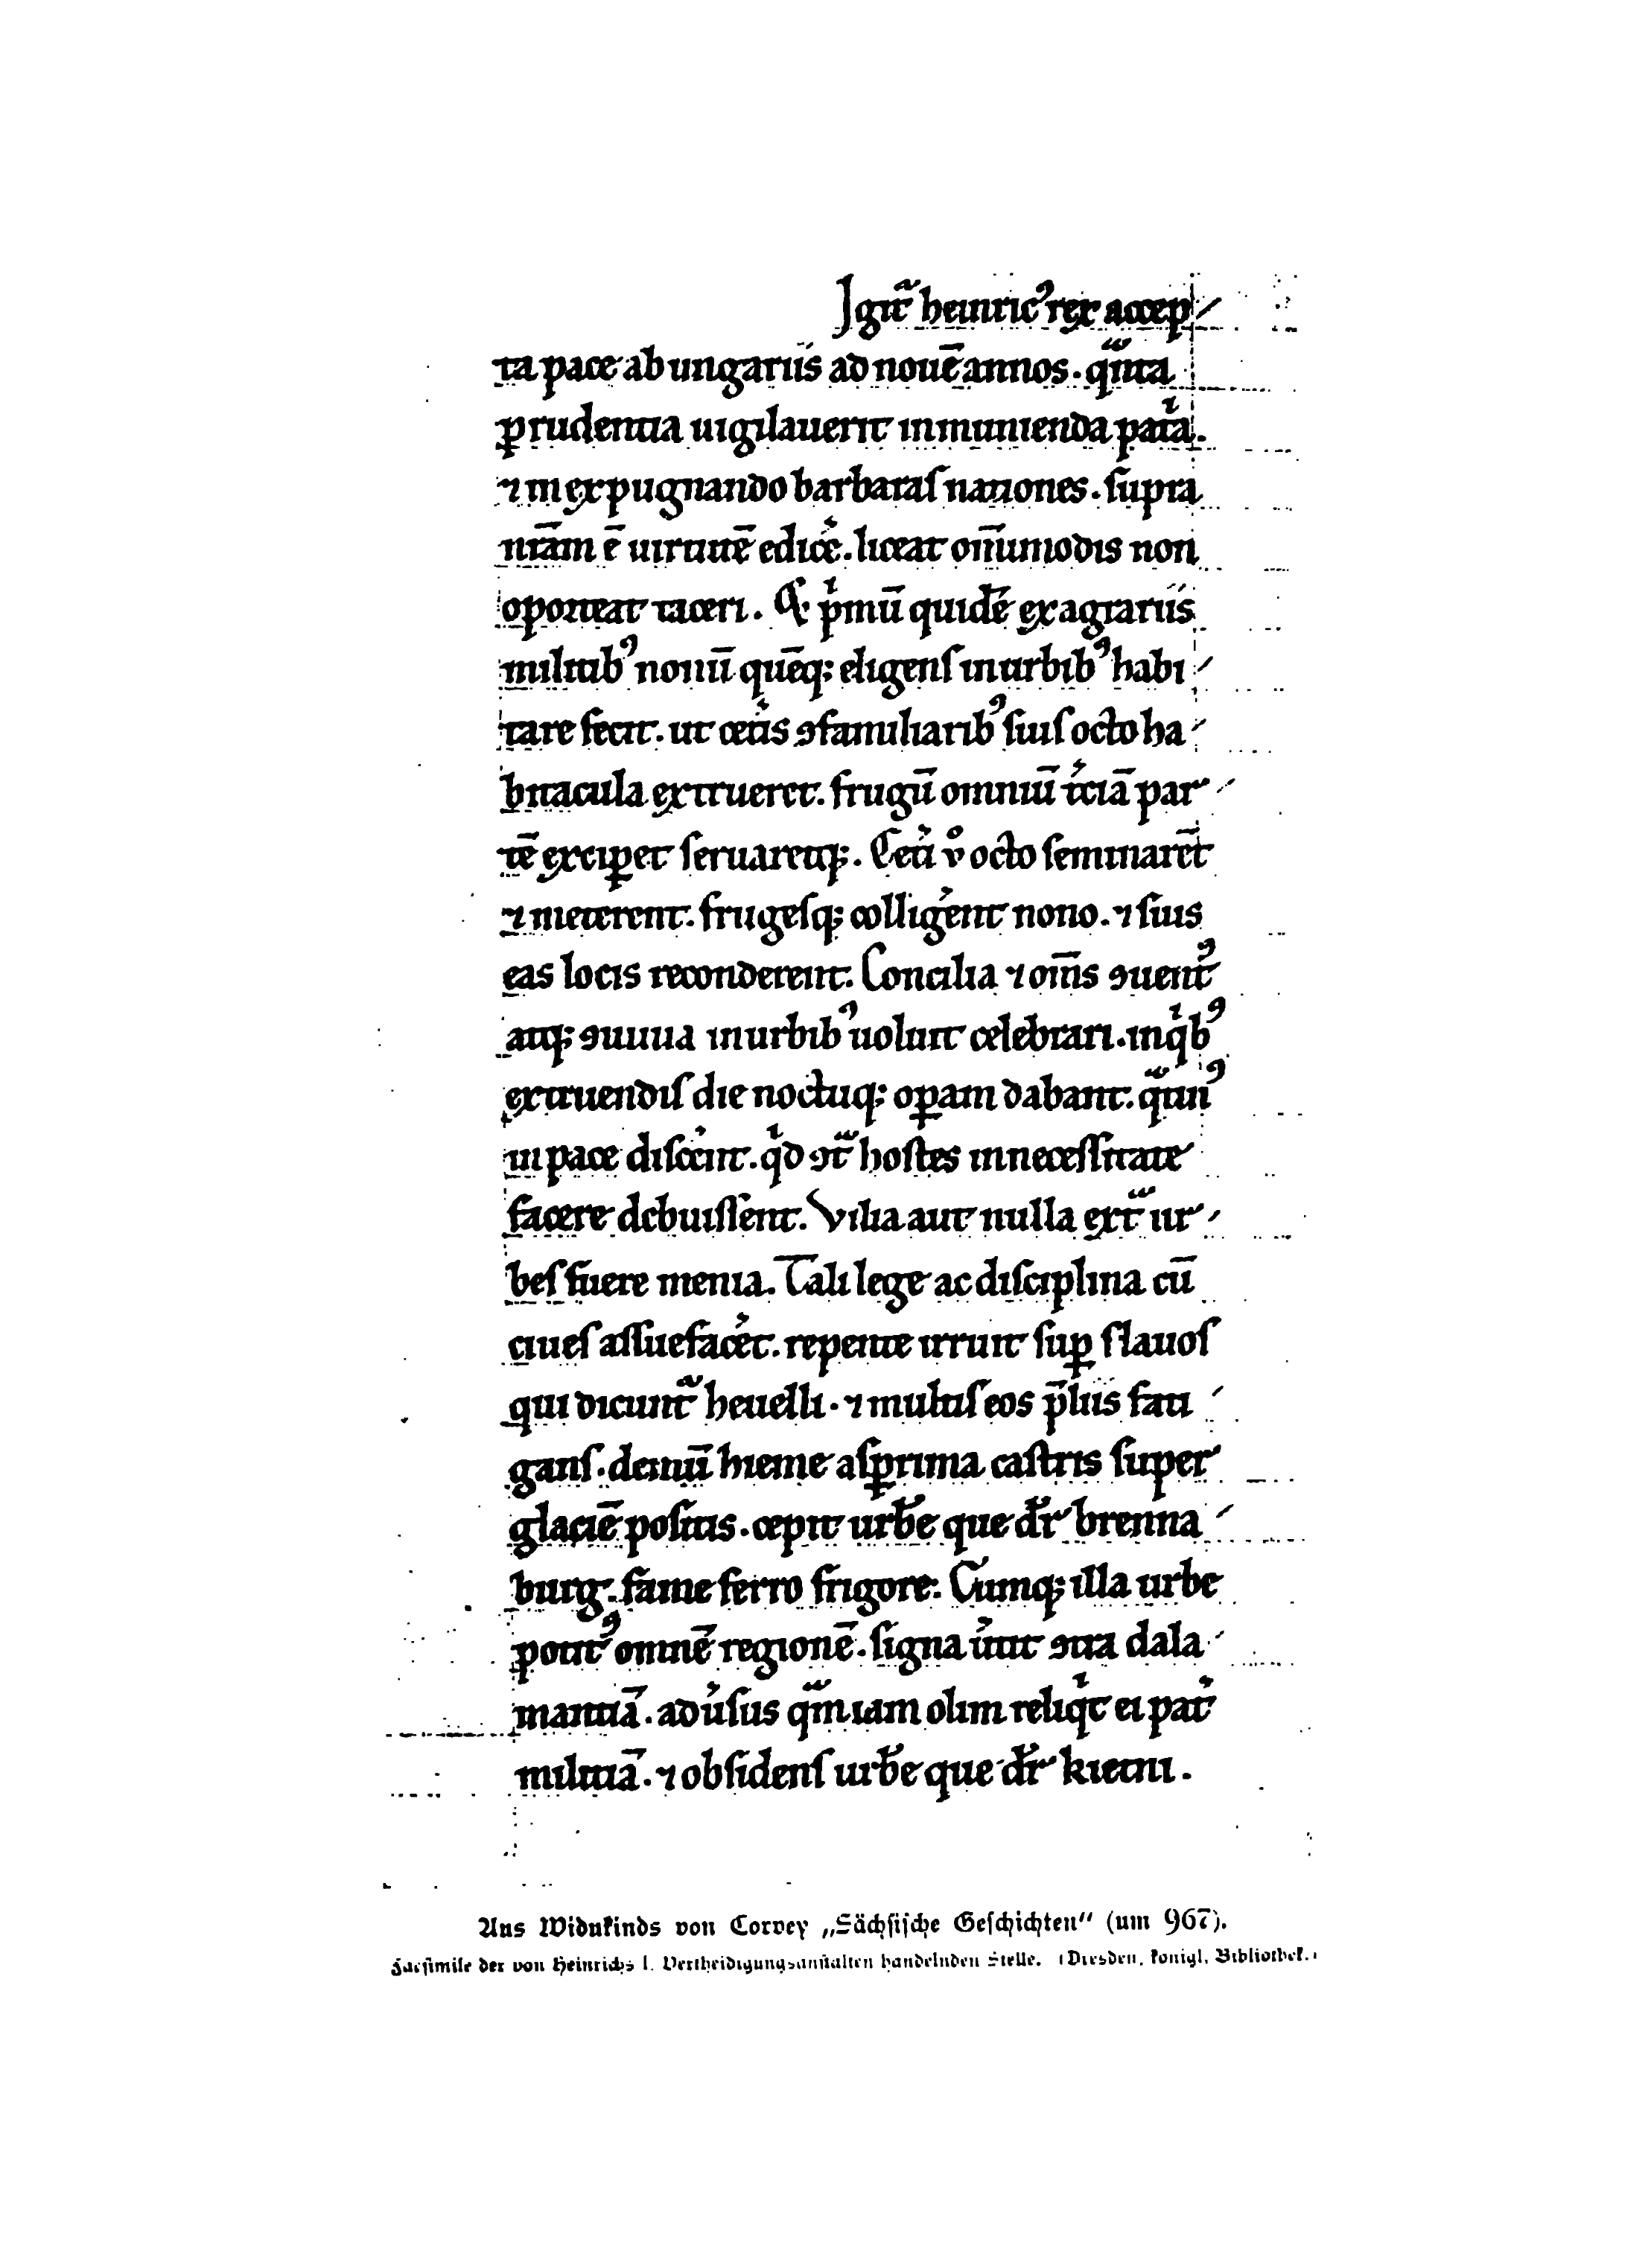 Igit᷑ heinricꝰ rex accep⸝
ta pace ab ungariis ad nouē annos. qᷓnta
prudentia uigilauerit in munienda patͥa.
⁊ in expugnando barbaraſ nationes. ſupra
nr̄am ē uirtutē edicc̓e. liceat om̄imodis non
oporteat taceri. Et pͥmū quidē ex agrariis
militibꝰ nonū quēq; eligenſ in urbibꝰ habi⸝
tare fecit. ut cet̓is ꝯfamiliaribꝰ ſuiſ octo ha⸝
bitacula extrueret. frugū omniū t̓ciā par⸝
tē exciꝑet ſeruaretq;. Cet̓i v̊ octo ſeminarēt
⁊ meterent. frugeſq; collig̓ent nono. ⁊ ſuis
eas locis reconderent. Concilia ⁊ om̄s ꝯuentꝰ
atq; ꝯuiuia in urbibꝰ uoluit celebrari. in qͥbꝰ
extruendiſ die noctuq; oꝑam dabant. qᷓtinꝰ
in pace diſcc̓ent. qͥd ꝯtᷓ hoſtes in neceſſitate
facere debuiſſent. Vilia aut nulla extᷓ ur⸝
beſ fuere menia. Tali lege ac diſciplina cū
ciueſ aſſuefac̓et. repente irruit ſuꝑ ſlauoſ
qui dicunt᷑ heuelli. ⁊ multiſ eos p̄liis fati⸝
ganſ. demū hieme aſꝑrima caſtris ſuper
glaciē poſitis. cepit urbē que dr̄ brenna⸝
burg. fame ferro frigore. Cumq; illa urbe
potitꝰ omnē regionē. ſigna u̓tit ꝯtra dala⸝
mantiā. adu̓ſus qᷓm iam olim reliqͥt ei pat̓
militiā. ⁊ obſidenſ urbē que dr̄ kietni.
Aus Widukinds von Corvey „Sächſiſche Geſchichten“ (um 967).
Facſimile der von Heinrichs I. Vertheidigungsanſtalten handelnden Stelle. (Dresden, königl. Bibliothek.)